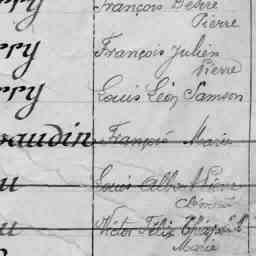 François Desse
Pierre
rry François Julien
Pierre
rry Louis Léon Samson
audin François Marie
u Louis
u Victor Félix
Marie